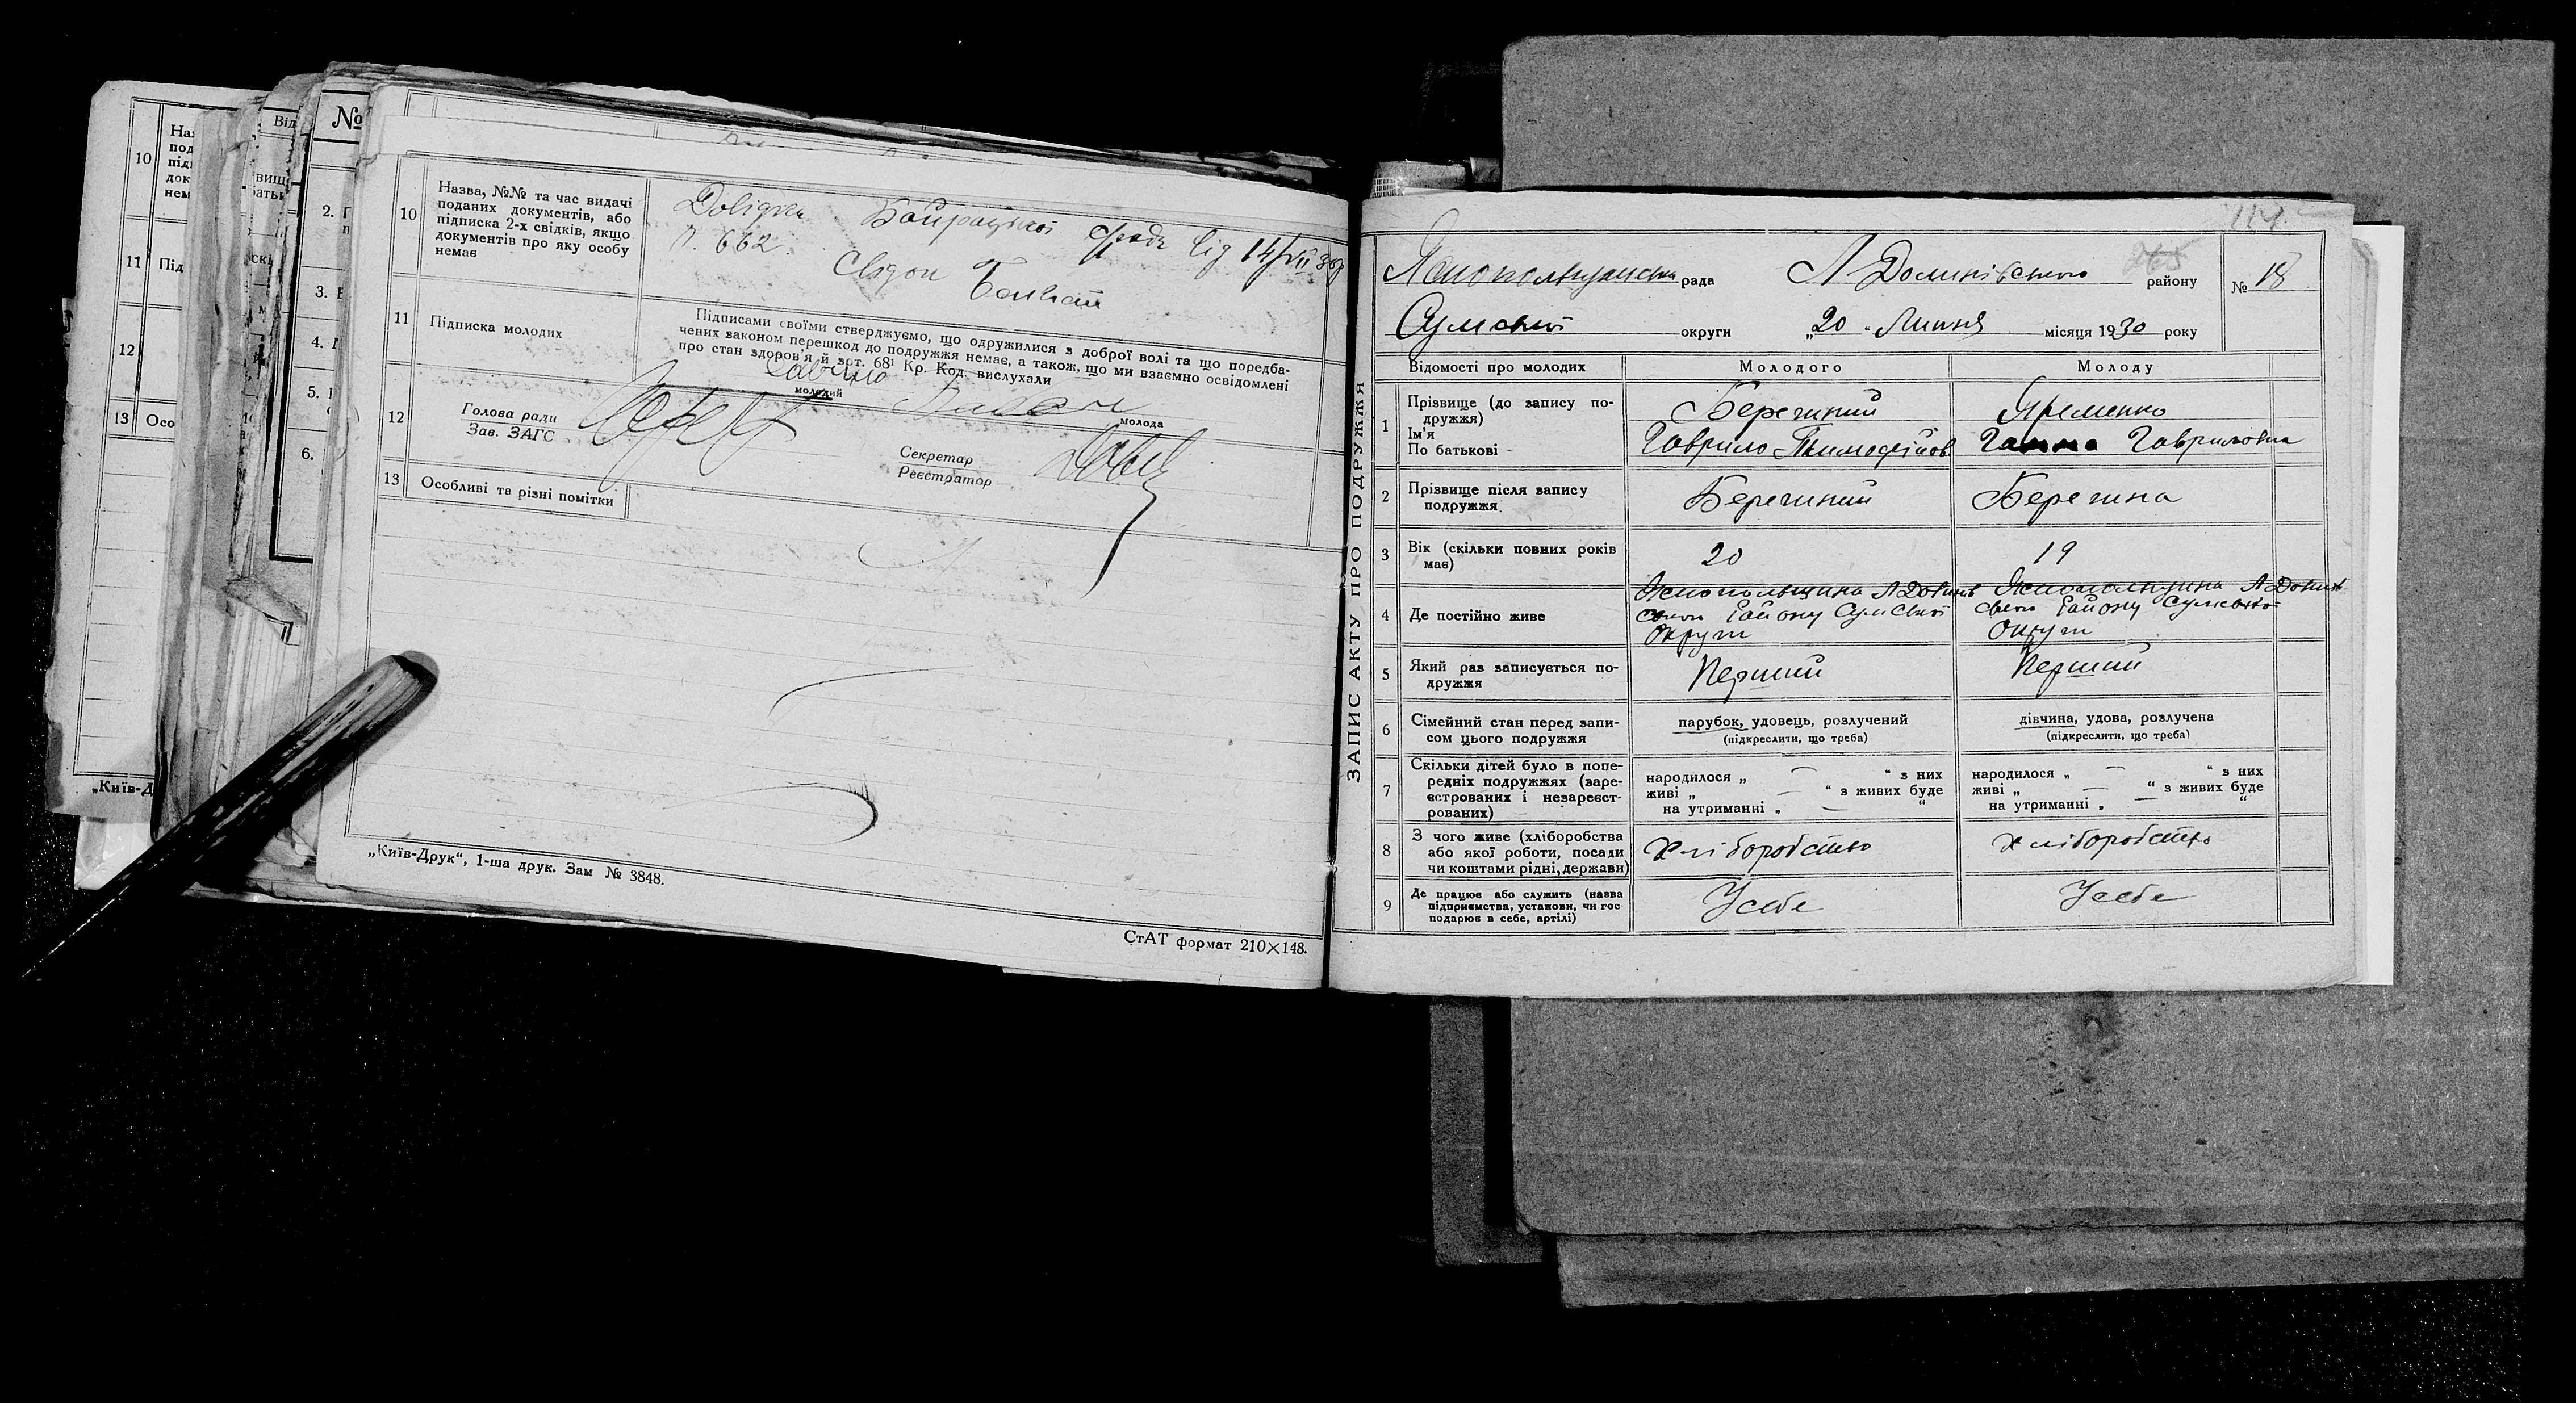 10
На
под
підп
док
нем
11 Під
12
13 Осо
„Київ-Д
Від
№
2.
3.
4.
5.
6.
10
Назва, №№ та час видачі
поданих документів, або
підписка 2-х свідків, якщо
документів про яку особу
немає
Байрацької с/ради від 14/VII 30р
№ 662
11
Підписка молодих
Підписами своїми стверджуємо, що одружилися з доброї волі та що поредба-
чених законом перешкод до подружжя немає, а також, що ми взаємно освідомлені
про стан здоров'я й зст. 68¹ Кр. Код. вислухали
молодий
молода
12
Голова ради
Зав. ЗАГС
Секретар
Реєстратор
13
Особливі та різні помітки
„Київ-Друк“, 1-ша друк. Зам № 3848.
СтАТ формат 210×148.
ЗАПИС АКТУ ПРО ПОДРУЖЖЯ
рада
району
№ 18
Сумської округи „20“ Липня місяця 1930 року
Відомості про молодих
Молодого
Молоду
1
Прізвище (до запису по-
дружжя)
Ім'я
По батькові
Берегиний
Гаврило Тимофійов.
Яременко
Ганна Гавриловна
2
Прізвище після запису
подружжя.
Берегиний
Берегина
3
Вік (скільки повних років
має)
20
19
4
Де постійно живе
Яснопольщина
Району Сумської
Округи
Яснопольщина
Району Сумської
Округи
5
Який раз записується по-
дружжя
Перший
Перший
6
Сімейний стан перед запи-
сом цього подружжя
парубок, удовець, розлучений
(підкреслити, що треба)
дівчина, удова, розлучена
(підкреслити, що треба)
7
Скільки дітей було в попе-
редніх подружжях (заре-
єстрованих і незареєст-
рованих)
народилося „ — “ з них
живі „ — “ з живих буде
на утриманні „ — “
народилося „ — “ з них
живі „ — “ з живих буде
на утриманні „ — “
8
З чого живе (хліборобства
або якої роботи, посади
чи коштами рідні, держави)
Хліборобство
Хліборобство
9
Де працює або служить (назва
підприємства, установи, чи гос
подарює в себе, артілі)
Усебе
Усебе